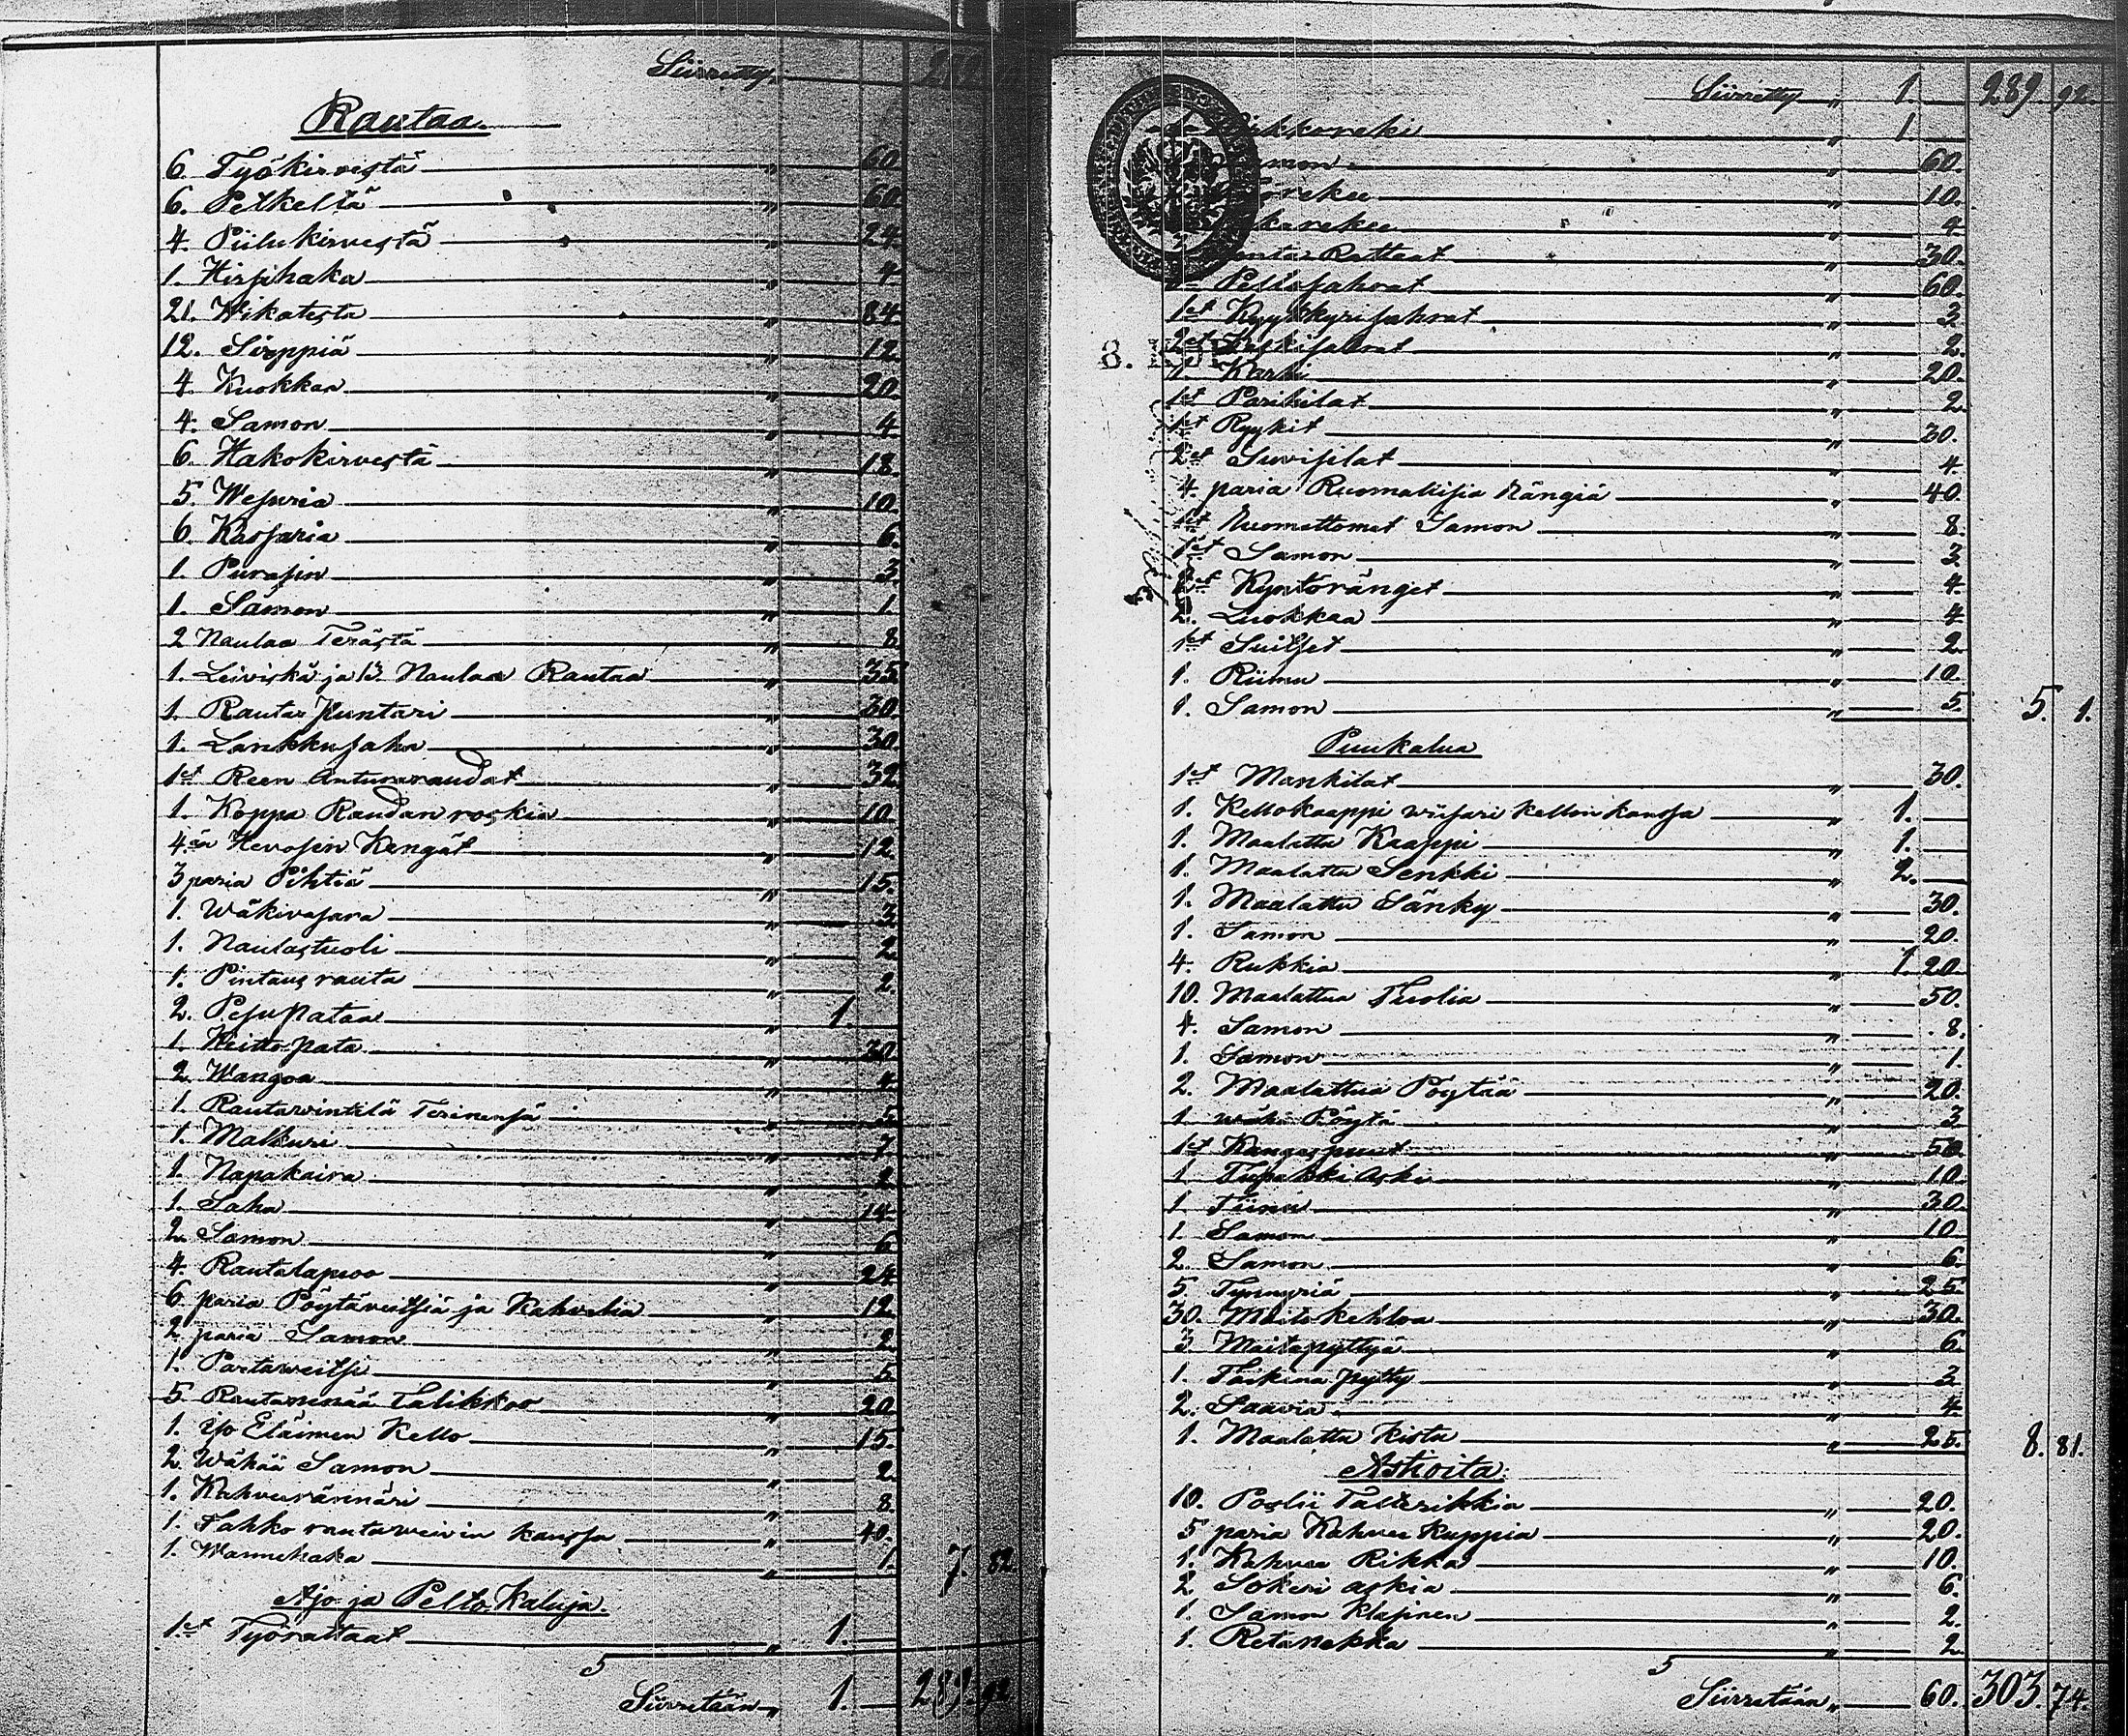 Siirretty „
Rautaa.
6. Työkirvestä „ 60.
6. Petkeltä „ 60
4. Piilukirvestä „ 24.
1. Hirsihaka „ 4
21. Wikatesta „ 84
12. Sirppiä „ 12
4 Kuokkaa „ 20
4. Samon „ 4.
6. Hakokirvestä „ 18.
5. Wesuria „ 10.
6 Kassaria „ 6.
1. Purasin „ 3.
1. Samon „ 1.
2 Naulaa Terästä „ 8.
1. Leiviskä ja 13. Naulaa Rautaa „ 35
1. Rauta Puntari „ 30.
1. Lankkusaha „ 30
1et Reen Anturaraudat „ 32
1. Koppa Raudan roskia „ 10
4.än Hevosen Kengät „ 12.
3 paria Pihtiä „ 15.
1. Wäkivasara „ 3
1. Naulastuoli „ 2
1. Pintaus rauta „ 2.
2. Pesupataa „ 1.
1. Keitto pata „ 30
2 Wangoa „ 4
1. Rautavintilä Terinensä „ 5
1. Malkuri „ 7
1. Napakaira „ 2
1. Saha „ 14.
2. Samon „ 6
4. Rautalapioo „ 24
6 paria Pöytäveitsiä ja Kahvelia „ 12
2 paria Samon „ 2
1. Partaweitsi „ 5
5. Rautanenää Talikkoo „ 20
1. iso Eläimen Kello „ 15.
2. Wähää Samon „ 2.
1. Kahverännäri „ 8.
1. Tahko rautaweivin kanssa „ 40.
1. Wannehaka „ 1. 7. 52
Ajo ja Pelto Kaluja.
1et Työrattaat „ 1.
Siirretään „ 1. 289 92
Siirretty „ 1. 289. 92.
„ 1
„ 60.
„ 10.
„ 4
Rattaat „ 30.
Peltosahrat „ 60.
1et Kyykkyrisahrat „ 3
2et „ 2.
Karhi „ 20.
1et Parihilat „ 2
1et Ryykit „ 30.
2et Suvisilat „ 4.
4. paria Ruomallisia Rängiä „ 40.
1et Ruomattomat Samon „ 8.
1et Samon „ 3
Kyntöränget „ 4.
2. Luokkaa „ 4
1et Suitset „ 2.
1. Riimu „ 10
1. Samon „ 5 5. 1.
Puukalua
1et Mankilat „ 30.
1. Kellokaappi wiisari kellon kanssa „ 1.
1. Maalattu Kaappi „ 1.
1. Maalattu Senkki „ 2.
1. Maalattu Sänky „ 30.
1. Samon „ 20.
4. Rukkia „ 1. 20
10. Maalattua Tuolia „ 50.
4. Samon „ 8.
1. Samon „ 1
2. Maalattua Pöytää „ 20.
1. wähä Pöytä „ 3
1et Kangaspuut „ 50
1 Tupakki Aski „ 10
1 Tiinu „ 30.
1. Samon „ 10
2. Samon „ 6.
5. Tynnyriä „ 25.
30. Maitokehloa „ 30.
3 Maitopyttyä „ 6.
1. Taikina pytty „ 3
2. Saavia „ 4.
1. Maalattu Kistu „ 25. 8. 81.
Astioita.
10. Poslii Tallrikkia „ 20.
5 paria Kahvee kuppia „ 20.
1. Kahvee Rikka „ 10.
2 Sokeri askia „ 6.
1. Samon Klasinen „ 2.
1. Retanokka „ 2
Siirretään „ 60. 303. 74.